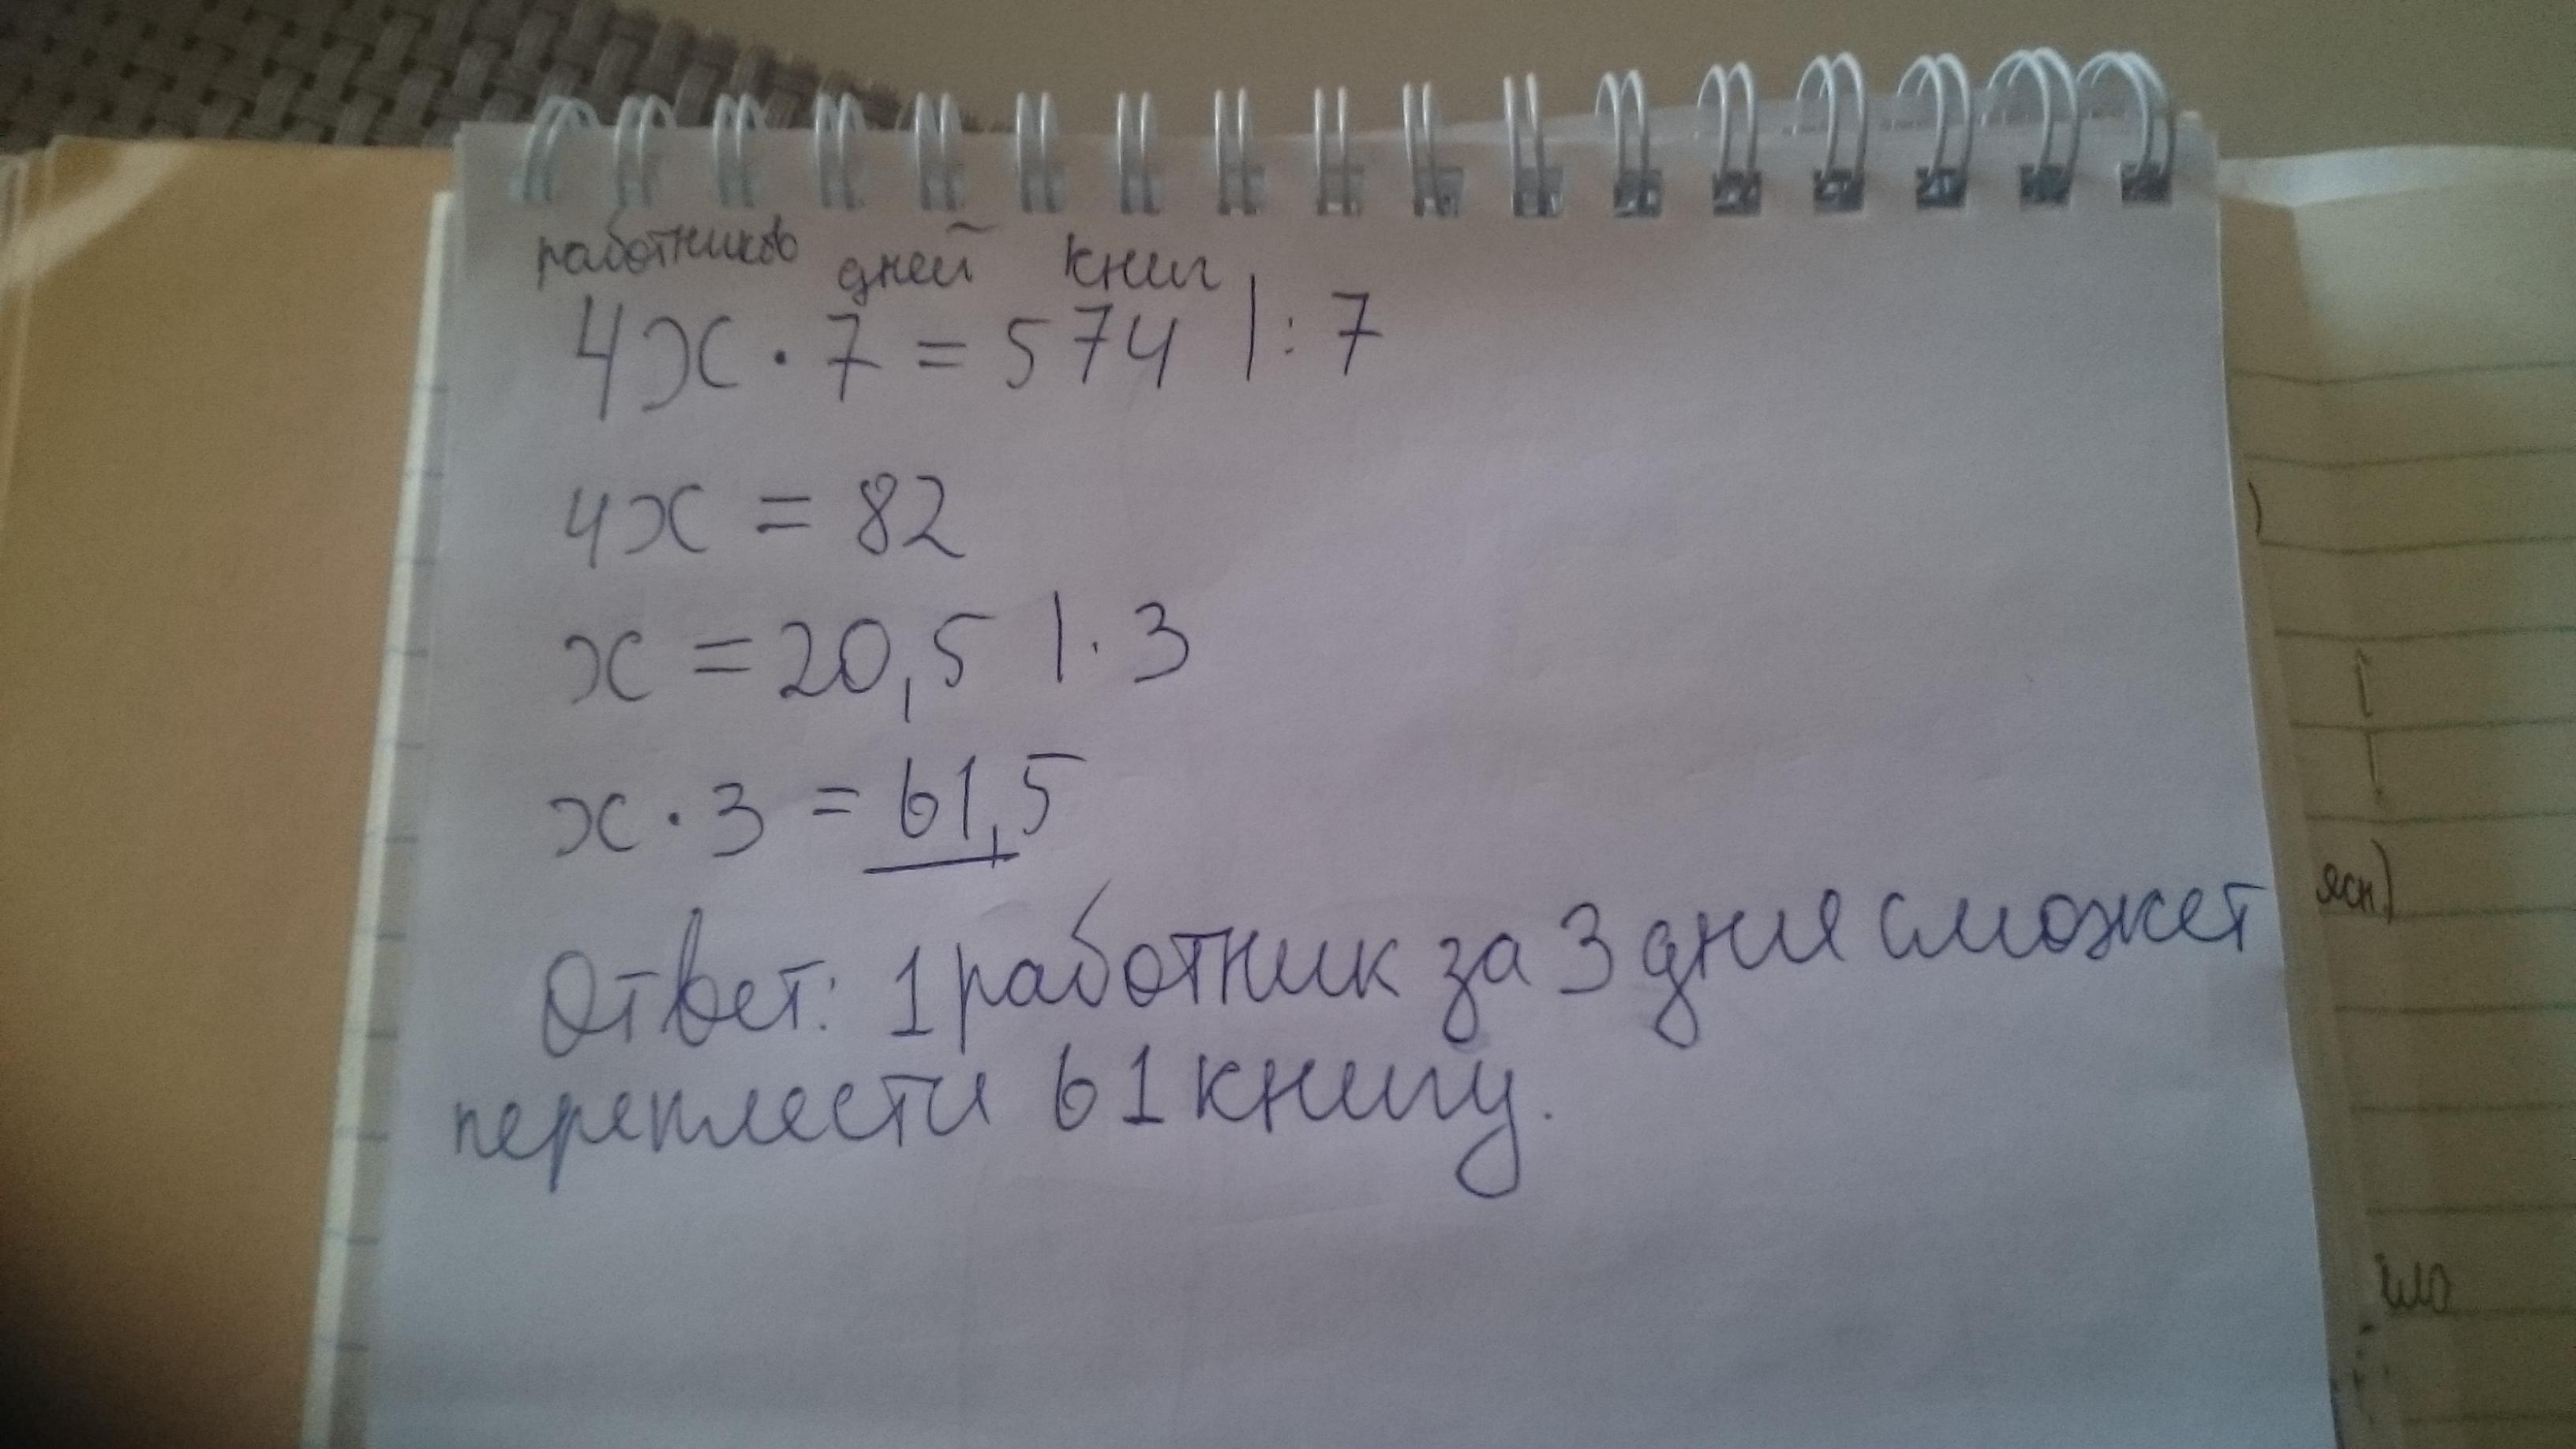 работников дней книг
4x · 7 = 574 | : 7
4x = 82
x = 20,5 | · 3
x · 3 = 61,5
Ответ: 1 работник за 3 дня сможет
переплести 61 книгу.
ясн)